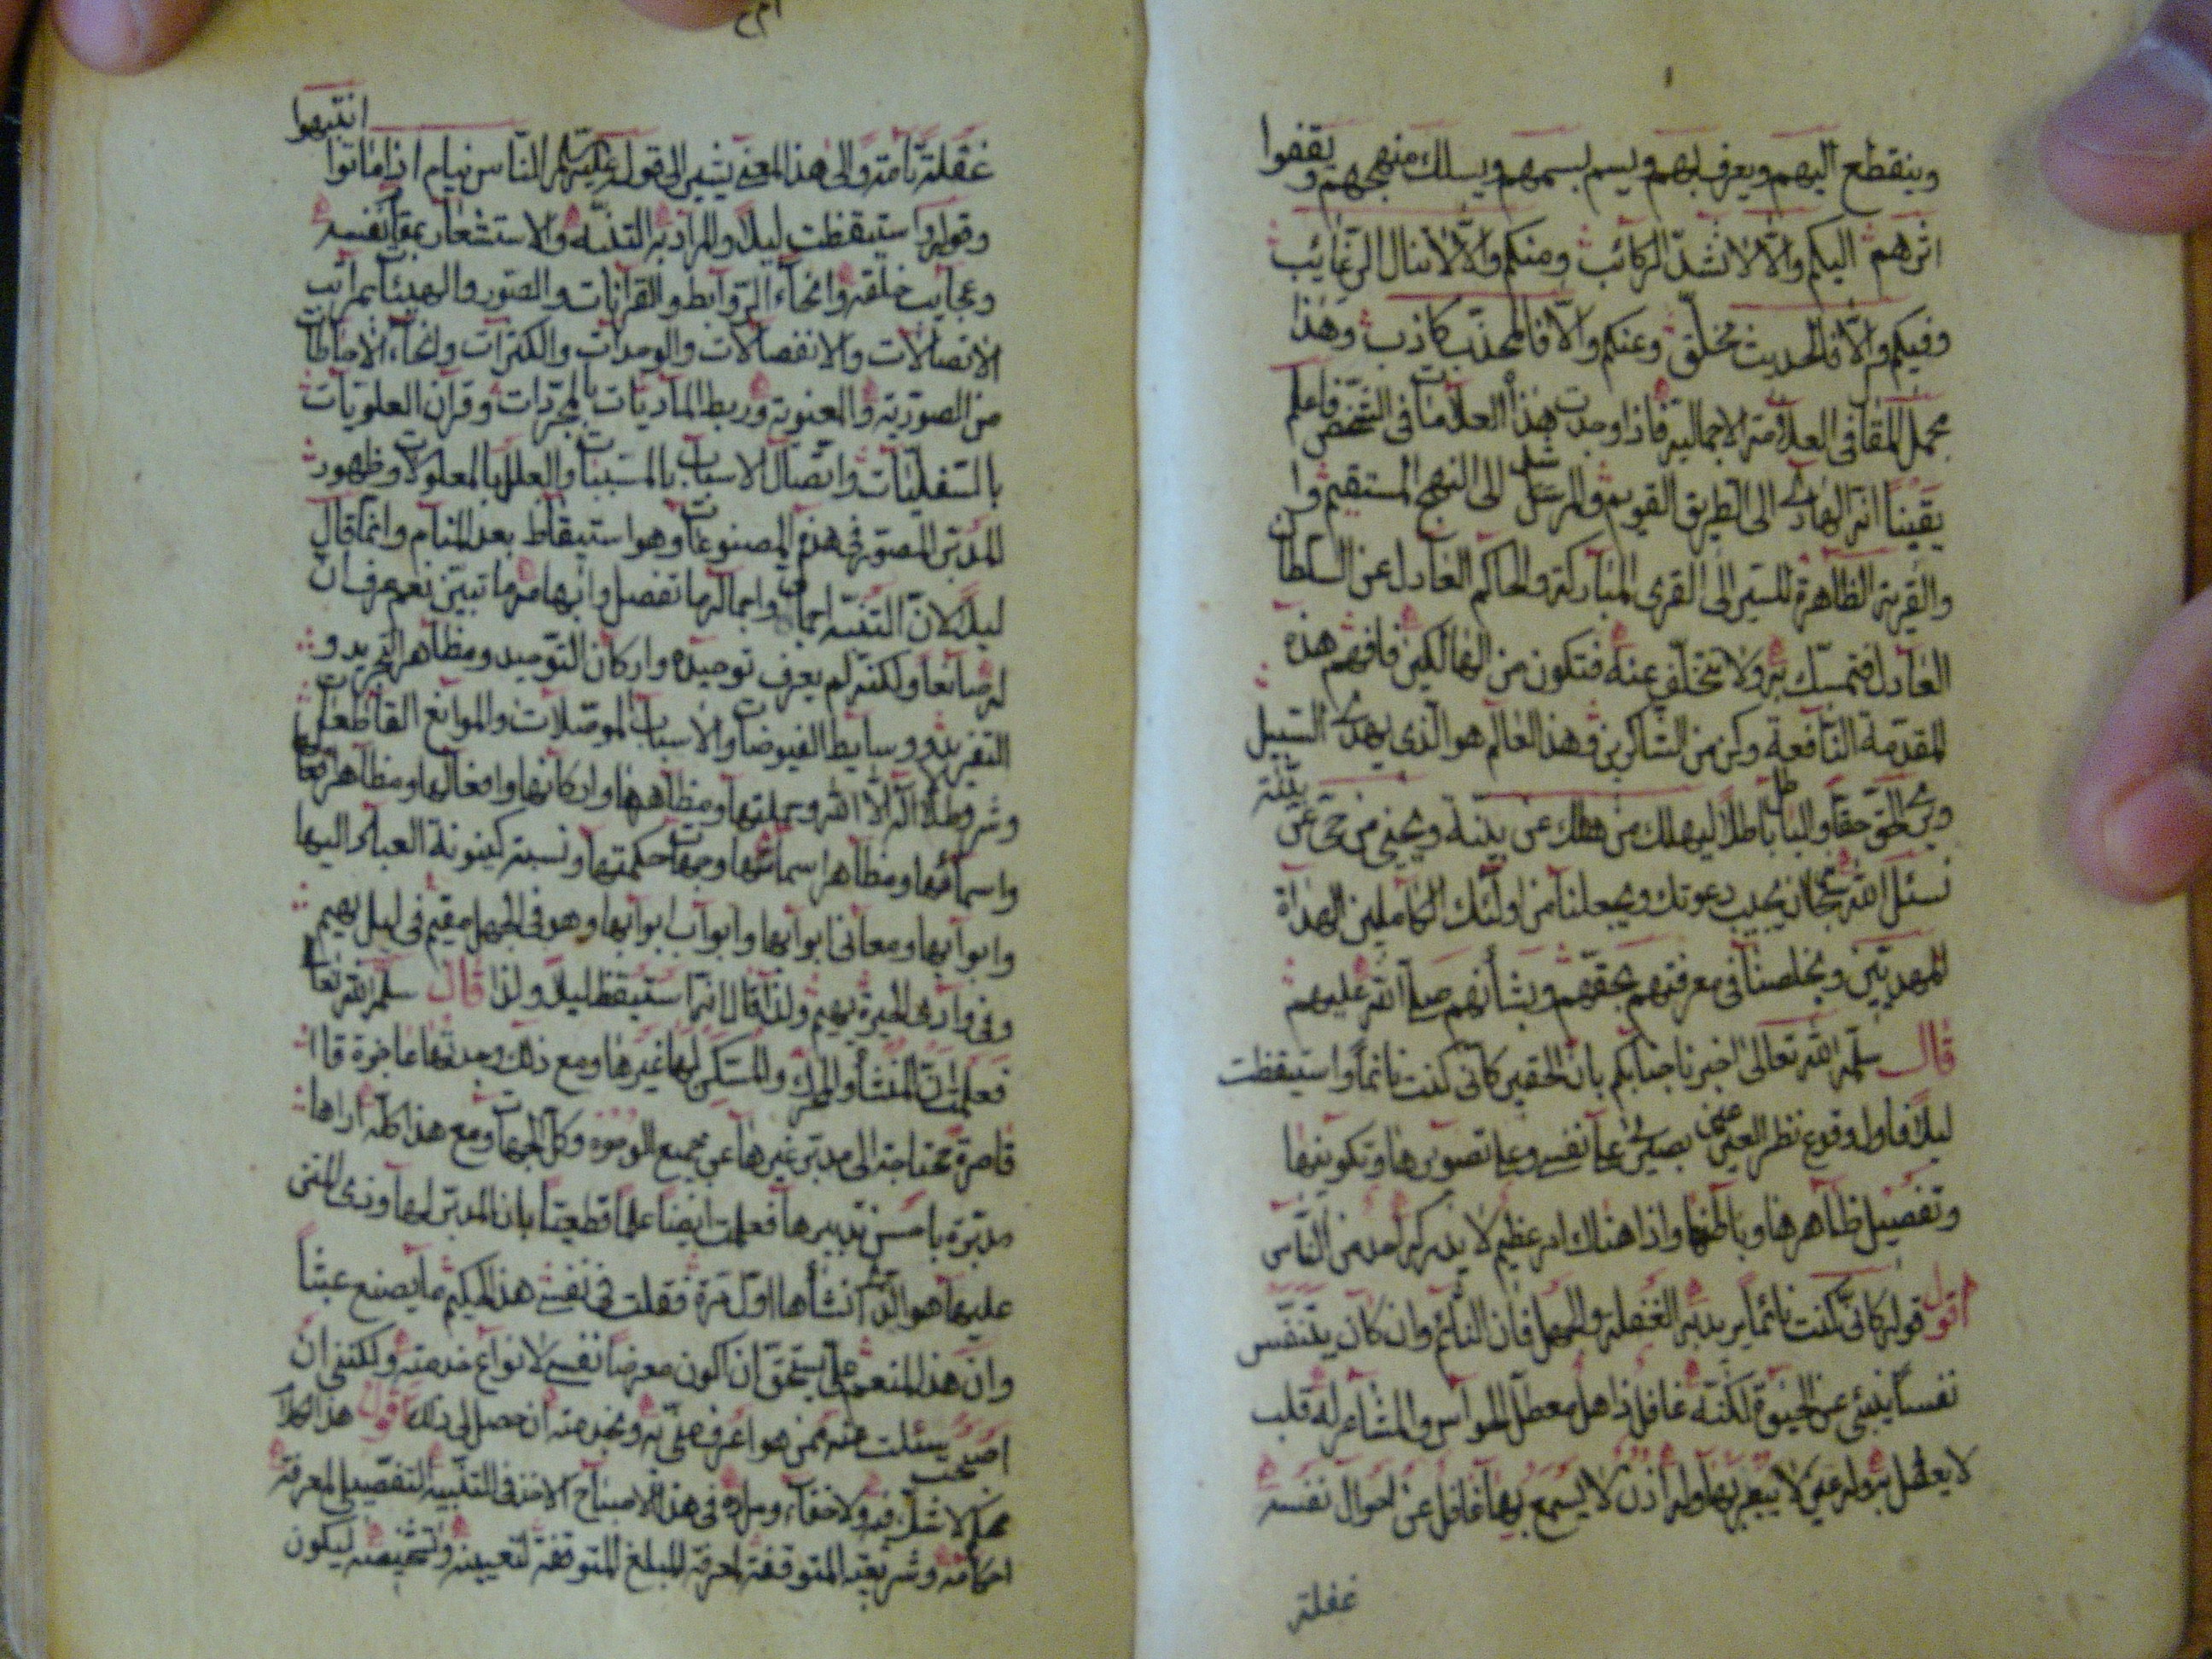 وينقطع اليهم ويعرف بهم ويسم بسمهم ويسلك منهجهم ويقفوا
اثرهم اليكم والّا لا تشدّ الركائب ومنكم والّا لا تنال الرغائب
وفيكم والّا فالحديث مخلّق وعنكم والّا فالمحدّث كاذب وهذا
مجمل المقال فى العلامة الاجمالية فاذا وجدت هذا العلامات فى الشخص فاعلم
يقيناً انه الهادى الى الطريق القويم والمرشد الى النهج المستقيم
والقرية الظاهرة للسير الى القرى المباركة والحاكم العادل عن السلطان
العادل فتمسّك به ولا تتخلّف عنه فتكون من الهالكين فافهم هذه
المقدمة النافعة وكن من الشاكرين وهذا العالم هو الذى يهدى السبيل
الحق حقّا والباطل باطلا ليهلك من هلك عن بيّنة ويحيى من حىّ عن بيّنة
نسئل الله ان يجيب دعوتك ويجعلنا من اولئك الكاملين الهداة
المهديّين ويخلصنا فى معرفتهم بحقّهم وبشأنهم صلى الله عليهم
قال سلّمه الله تعالى اخبر ناجنابكم بان الحقير كانى كنت نائماً واستيقظت
ليلا فاول وقوع نظر العين عين بصيرتى على نفسى وعلى تصويرها وتكوينها
وتفصيل ظاهرها وباطنها واذا هناك امر عظيم لا يدركه احد من الناس
اقول قوله كانّى كنت نائماً يريد به الغفلة والجهل فان النائم وان كان يتنفّس
نفساً ينبئى عن الحيوة لكنّه غافل ذاهل معطل الحواس والمشاعر له قلب
لا يعقل به وله عين لا يبصر بها وله اذن لا يسمع بها غافل عن احوال نفسه
غفلة
غفلة تامة والى هذا المعنى يشير الى قوله عليه السلام الناس نيام اذا ماتوا انتبهوا
وقوله واستيقظت ليلا والمراد به التنبّه والاستشعار بمقام نفسه
وعجايب خلقه وانحاء الروابط والقرانات والصور والهيئات بمراتب
الاتصالات والانفصالات والوحدات والكثرات وانحاء الاحاطات
من الصورية والمعنوية وربط الماديات بالمجردات وقران العلويات
بالسفليات واتّصال الاسباب بالمسببات والعلل بالمعلولات وظهور
المدبّر المصوّر فى هذه المصنوعات وهو استيقاظ بعد المنام وانما قال
ليلاً لانّ التنبّه اجمالى واجمالها ما تفصل وابهامها ما تبيّن نعم عرف ان
له صانعاً ولكنّه لم يعرف توحيده واركان التوحيد ومظاهر التجريد و
التفريد ووسايط الفيوضات والاسباب الموصلات والموانع القاطعات
وشروط لا اله الا الله وحملتها ومظاهرها واركانها وافعالها ومظاهر
واسمائها ومظاهر اسمائها وجهات حكمتها ونسبة كينونة العباد اليها
وابوابها ومعانى ابوابها وابواب ابوابها وهو فى الجهل مقيم فى ليل بهيم
وفى وادى الحيرة يهيم ولذا قال انه استيقظ ليلا ولذا قال سلمه الله تعالى
فعلمت انّ المنشأ والمحرّك والمسكن لها غيرها ومع ذلك وجدتها عاجزة
قاصرة محتاجة الى مدبّر غيرها عن جميع الوجوه وكل الجهات ومع هذا كلّه اراها
مدبّرة باحسن تدبيرها فعلمت ايضاً علماً قطعيّاً بان المدبّر لها وذى المنن
عليها هو الذى انشأها اول مرة فقلت فى نفسى هذا الحكيم ما يصنع عبثاً
وان هذا المنعم علىّ يستحق ان اكون معرضاً نفسى لانواع خدمته ولكننى ان
اصبحت سئلت عنه ممن هو اعرف منّى به ونجد منه ان حصل لى ذلك اقول هذا الكلام
محكم لا شك فيه ولا خفاء ومراده فى هذا الاصباح الاخذ فى التنبيه التفصيلى لمعرفة
احكامه وشريعته المتوقفة لمعرفة المبلغ المتوقفة لتعيينه وتشخيصه ليكون